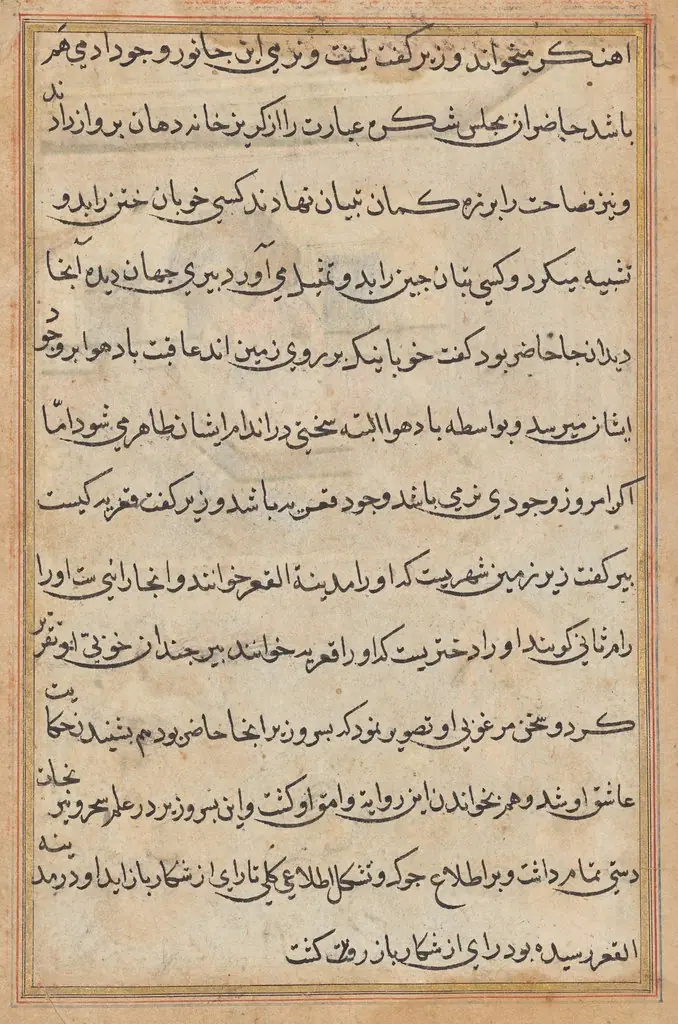 اهنکر میخواند وزیر کفت لینت و نرمی این جانور وجود ادمی هم
باشد حاضران مجلس شکره عبارت را از کریزخانه دهان برواز دادند
و نیز فصاحت را بر زه کمان تبیان نهادند کسی خوبان ختن را بدو
تشبیه میکرد و کسی بتان چین را بدو تمثیل می آورد بیری جهان دیده آنجا
دیدانجا حاضر بود کفت خوبانیکه بر روی زمین اند عاقبت باد هوا بر وجود
ایشان میرسد و بواسطه باد هوا البته سختی در اندام ایشان ظاهر می شود امّا
اکر امروز وجودی نرمی باشد وجود قعریه باشد وزیر کفت قعریه کیست
بیر کفت زیر زمین شهریست که او را مدینة القعر خوانند و انجا رائی ست او را
رام رثانی کویند او را دختریست که او را قعریه خوانند بیر چندان خوبی او تقریر
کرد و سخن مرغوبی او تصویر نمود که بسر وزیر انجا حاضر بود هم بشنیدن حکایت
عاشق او شد و هم بخواندن این روایة وامق او کشت و این بسر وزیر در علم سحر و نیرنجات
دستی تمام داشت و بر اطلاع جوکه و تشکل اطلاعی کلی تا رای از شکار باز اید او در مدینه
القعر رسیده بود رای از شکار باز کشت